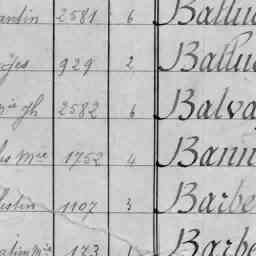 antin 2581 6 Ballu
ges 929 2 Ballu
Mie Jh 2582 6 Balva
les Mie 1752 4 Bann
lestin 1107 3 Barbe
atin Mie 173 1 Barbe